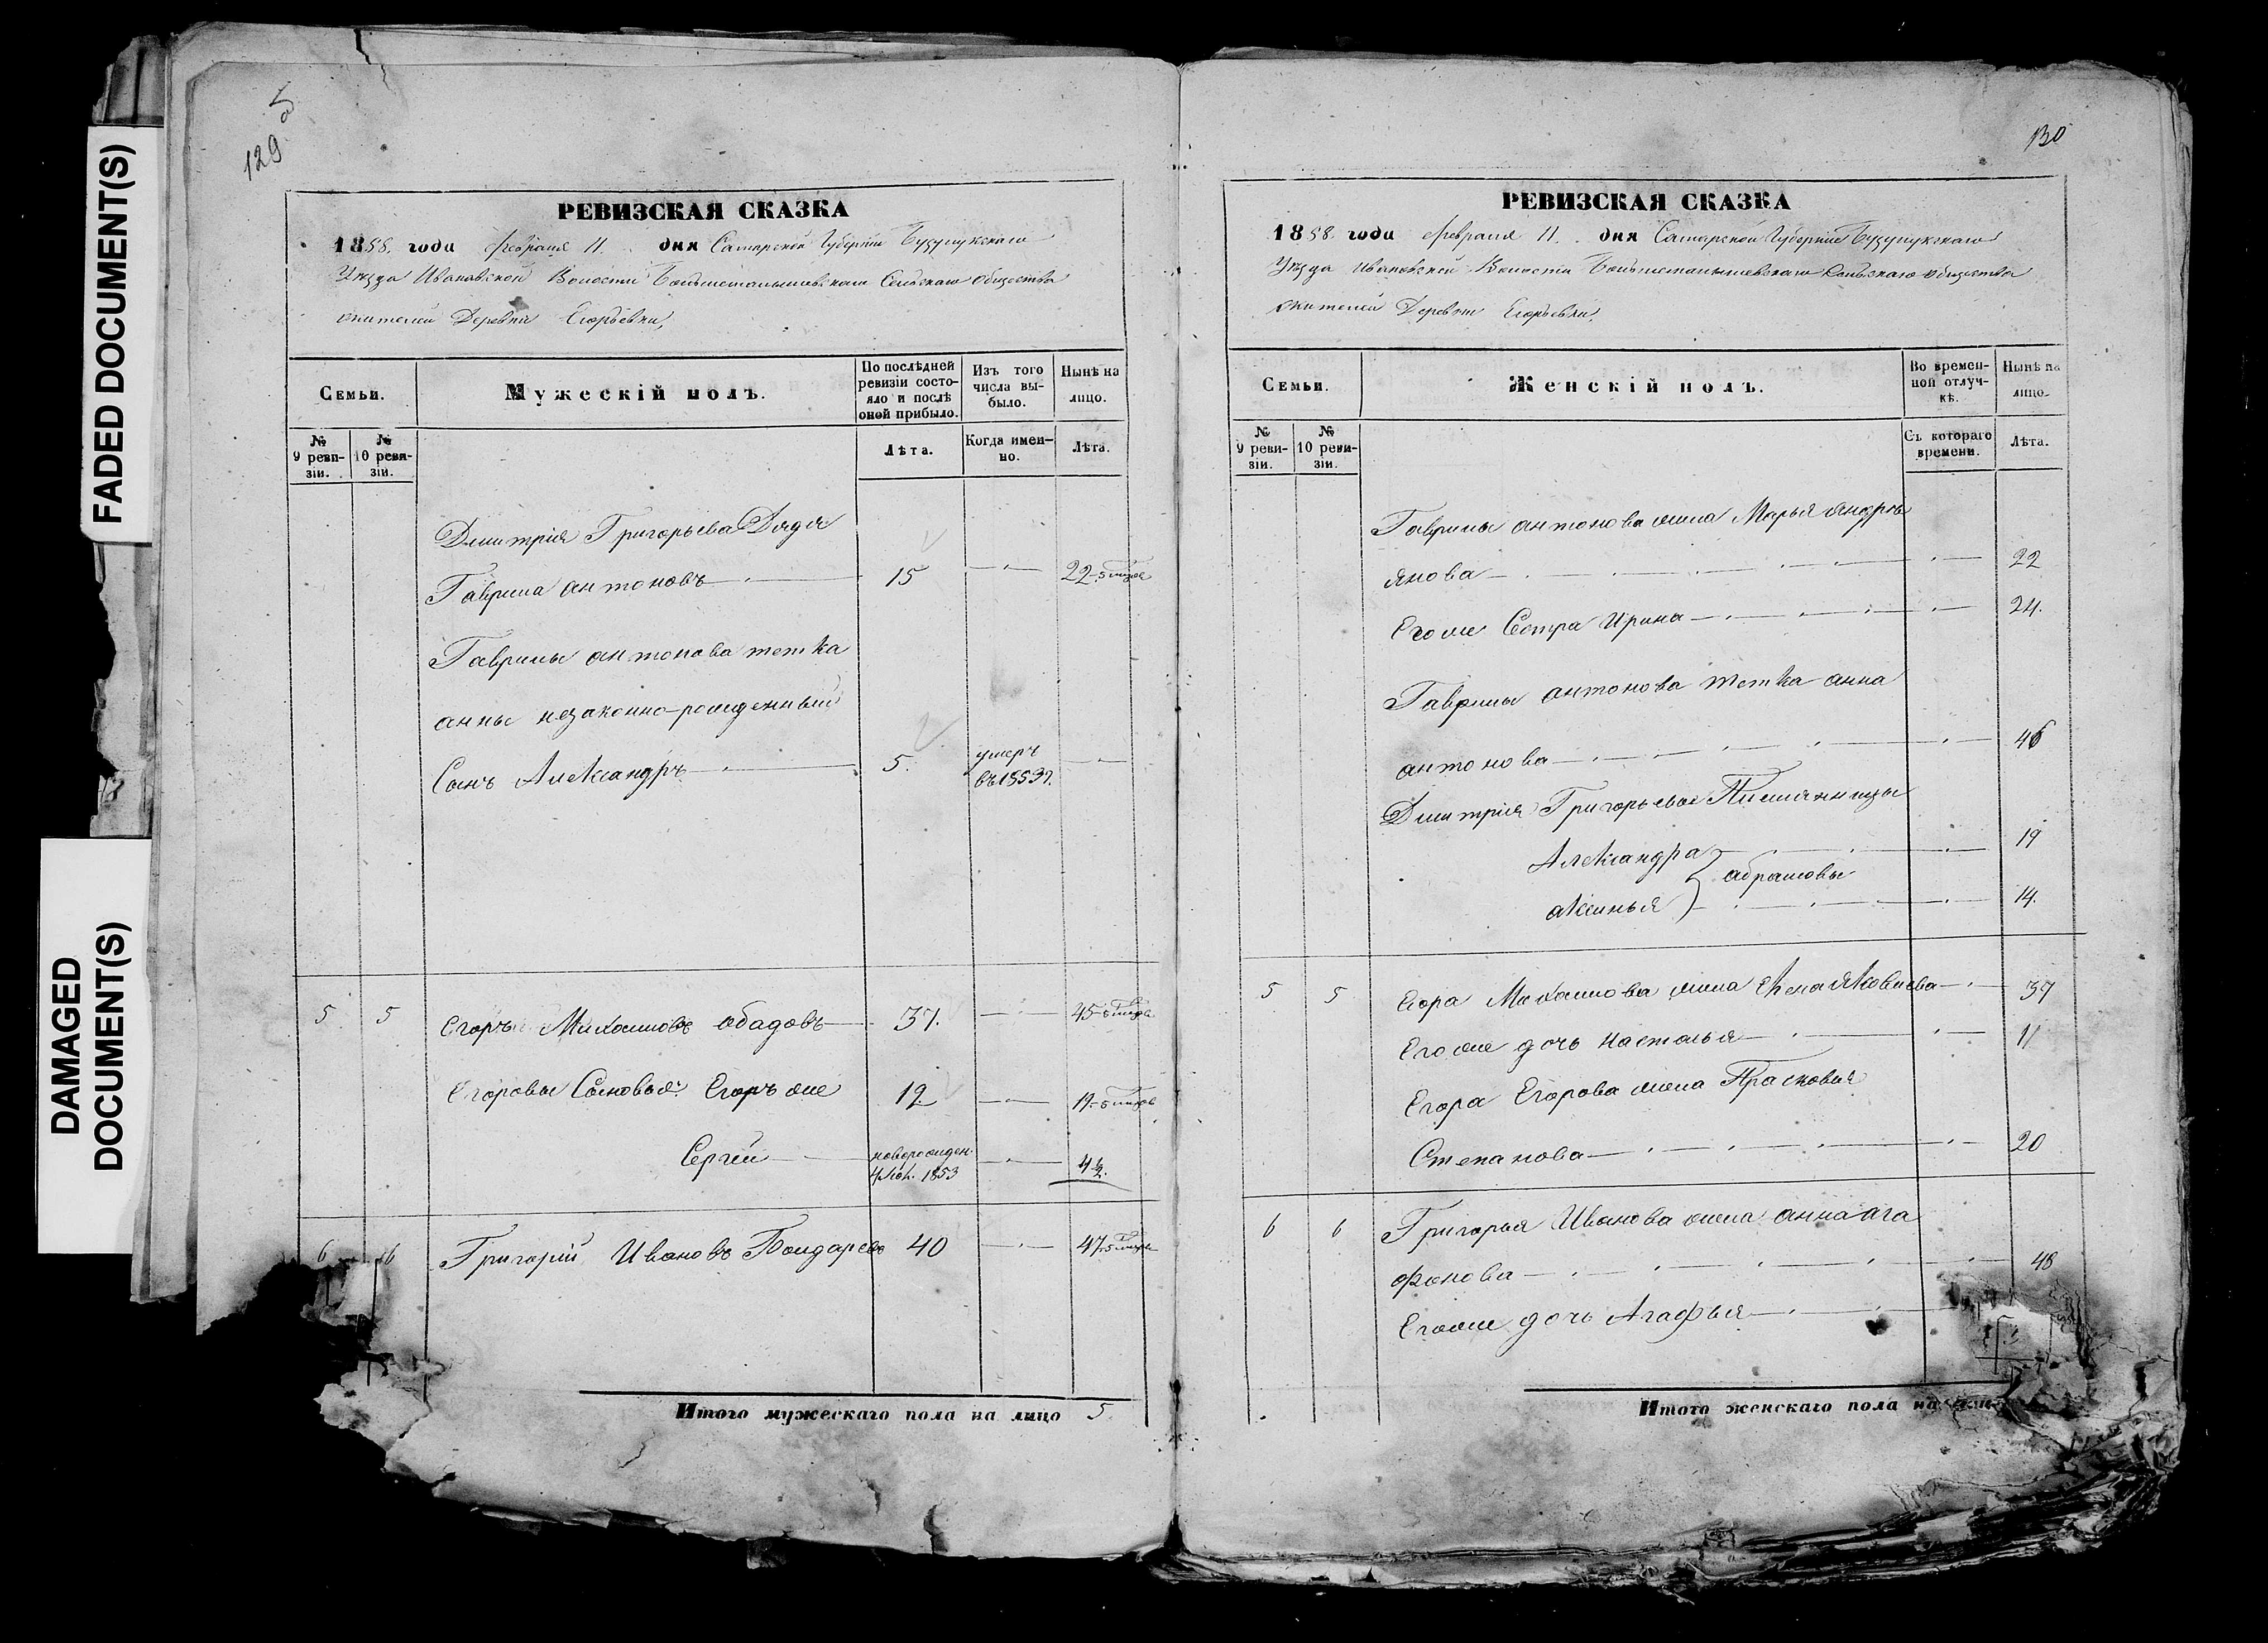 FADED DOCUMENT(S)
DAMAGED
DOCUMENT(S)
5
129
РЕВИЗСКАЯ СКАЗКА
1858. года февраля 11. дня Самарской Губерніи Бузулукскаго
Уѣзда Ивановской Волости Сельскаго Общества
жителей Деревни Егорьевки,
Семьи.
Мужескій полъ.
По послѣдней ревизіи состояло и послѣ оной прибыло.
Изъ того числа выбыло.
Нынѣ на лицо.
№ 9 ревизіи.
№ 10 ревизіи.
Лѣта.
Когда именно.
Лѣта.
Дмитрія Григорьева Дядя
Гаврила антоновъ 15 22
Гаврилы антонова тетка
анны незаконно-рожденный
Сынъ Александръ 5. умеръ въ 1853 г.
5 5 Егоръ Михаиловъ 37. 45
Егоровы Сыновья: Егоръ же 12 19
Сергей новорожден. 1853 4 1/2.
6 6 Григорій Ивановъ Бондаревъ 40 47
Итого мужескаго пола на лицо 5
130
РЕВИЗСКАЯ СКАЗКА
1858. года февраля 11. дня Самарской Губерніи Бузулукскаго
Уѣзда Ивановской Волости Сельскаго общества
жителей Деревни Егорьевки,
Семьи.
Женскій полъ.
Во временной отлучкѣ.
Нынѣ на лицо.
№ 9 ревизіи.
№ 10 ревизіи.
Съ котораго времени.
Лѣта.
Гаврилы антонова жена Марья андрѣ
янова 22
Его же Сестра Ирина 24.
Гаврилы антонова тетка анна
антонова 46
Дмитрія Григорьева Племянницы
Александра 19
абрамовы
аксинья 14.
5 5 Егора Михаилова жена Елена Яковлева 37
Его же дочь Настасья 11
Егора Егорова жена Прасковья
Степанова 20
6 6 Григорья Иванова жена анна ага
фонова 48
Его же дочь Агафья
Итого женскаго пола на